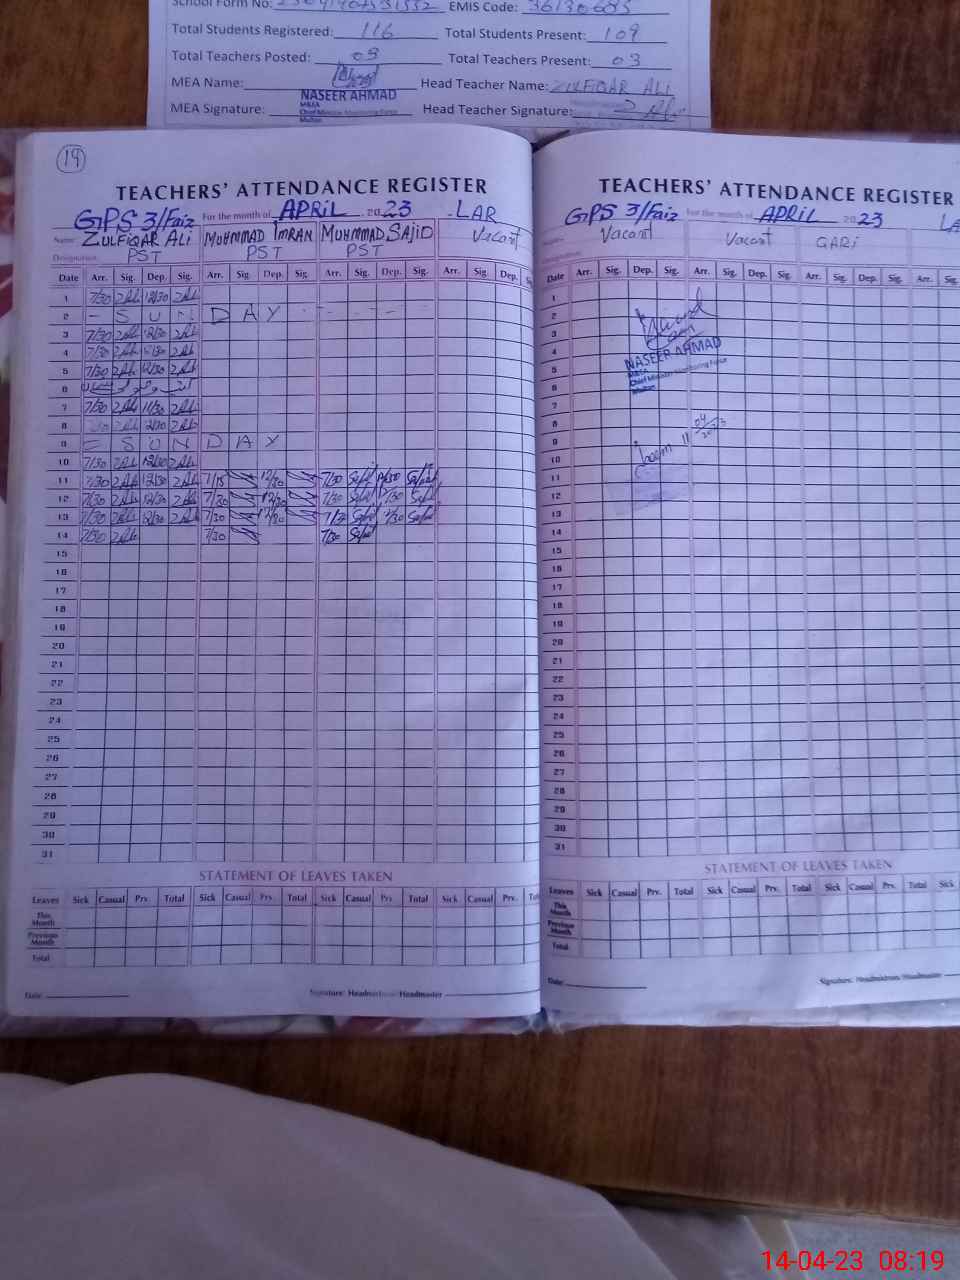 School Form No: EMIS Code:
Total Students Registered: 116 Total Students Present: 109
Total Teachers Posted: 03 Total Teachers Present: 03
MEA Name: Head Teacher Name: ZULFIQAR ALI
NASEER AHMAD
MEA Signature: Head Teacher Signature:
MEA
Chief Minister Monitoring Force
Multan
19
TEACHERS' ATTENDANCE REGISTER
GPS 3/Faiz For the month of APRIL 2023 LAR
Name ZULFIQAR ALI MUHMMAD IMRAN MUHMMAD SAJID Vacant
Designation PST PST PST
Date Arr. Sig. Dep. Sig. Arr. Sig. Dep. Sig. Arr. Sig. Dep. Sig. Arr. Sig. Dep.
1 7/30 12/30
2 – S U N D A Y - - - -
3 7/30 12/30
4 7/30 12/30
5 7/30 12/30
6
7 7/30 11/30
8
9 = S U N D A Y
10 7/30 12/30
11 7/30 12/30 7/15 12/30 7/30 12/30
12 7/30 12/30 7/30 12/30 7/30 12/30
13 7/30 12/30 7/30 12/30
14 7/30 7/30 7/30
15
16
17
18
19
20
21
22
23
24
25
26
27
28
29
30
31
STATEMENT OF LEAVES TAKEN
Leaves Sick Casual Prv. Total Sick Casual Prv. Total Sick Casual Prv. Total Sick Casual Prv.
This Month
Previous Month
Total
Date: Signature: Headmistress/Headmaster
TEACHERS' ATTENDANCE REGISTER
GPS 3/Faiz For the month of APRIL 2023 LA
Name Vacant Vacant QARi
Designation
Date Arr. Sig. Dep. Sig. Arr. Sig. Dep. Sig. Arr. Sig. Dep. Sig. Arr.
1
2
3
4
NASEER AHMAD
MEA
5
Chief Minister Monitoring Force
Multan
6
7
8
9
10
11
12
13
14
15
16
17
18
19
20
21
22
23
24
25
26
27
28
29
30
31
STATEMENT OF LEAVES TAKEN
Leaves Sick Casual Prv. Total Sick Casual Prv. Total Sick Casual Prv. Total Sick
This Month
Previous Month
Total
Date: Signature: Headmistress/Headmaster
14-04-23 08:19